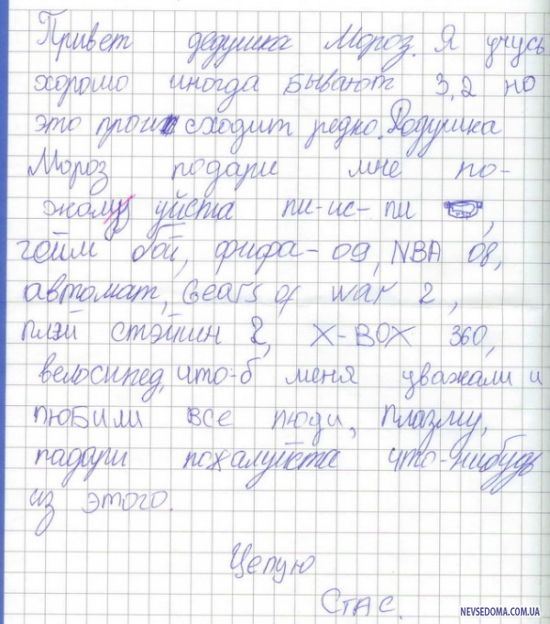 Привет дедушка Мороз. Я учусь
хорошо иногда бывают 3,2 но
это происходит редко. Дедушка
Мороз подари мне по-
жалуйста пи-ис-пи,
гейм бой, фифа-09, NBA 08,
автомат, Gears of war 2,
плэй стэйшин 2, X-BOX 360,
велосипед, что-б меня уважали и
любили все люди, плазму,
падари пожалуйста что-нибудь
из этого.
Целую
Стас.
NEVSEDOMA.COM.UA